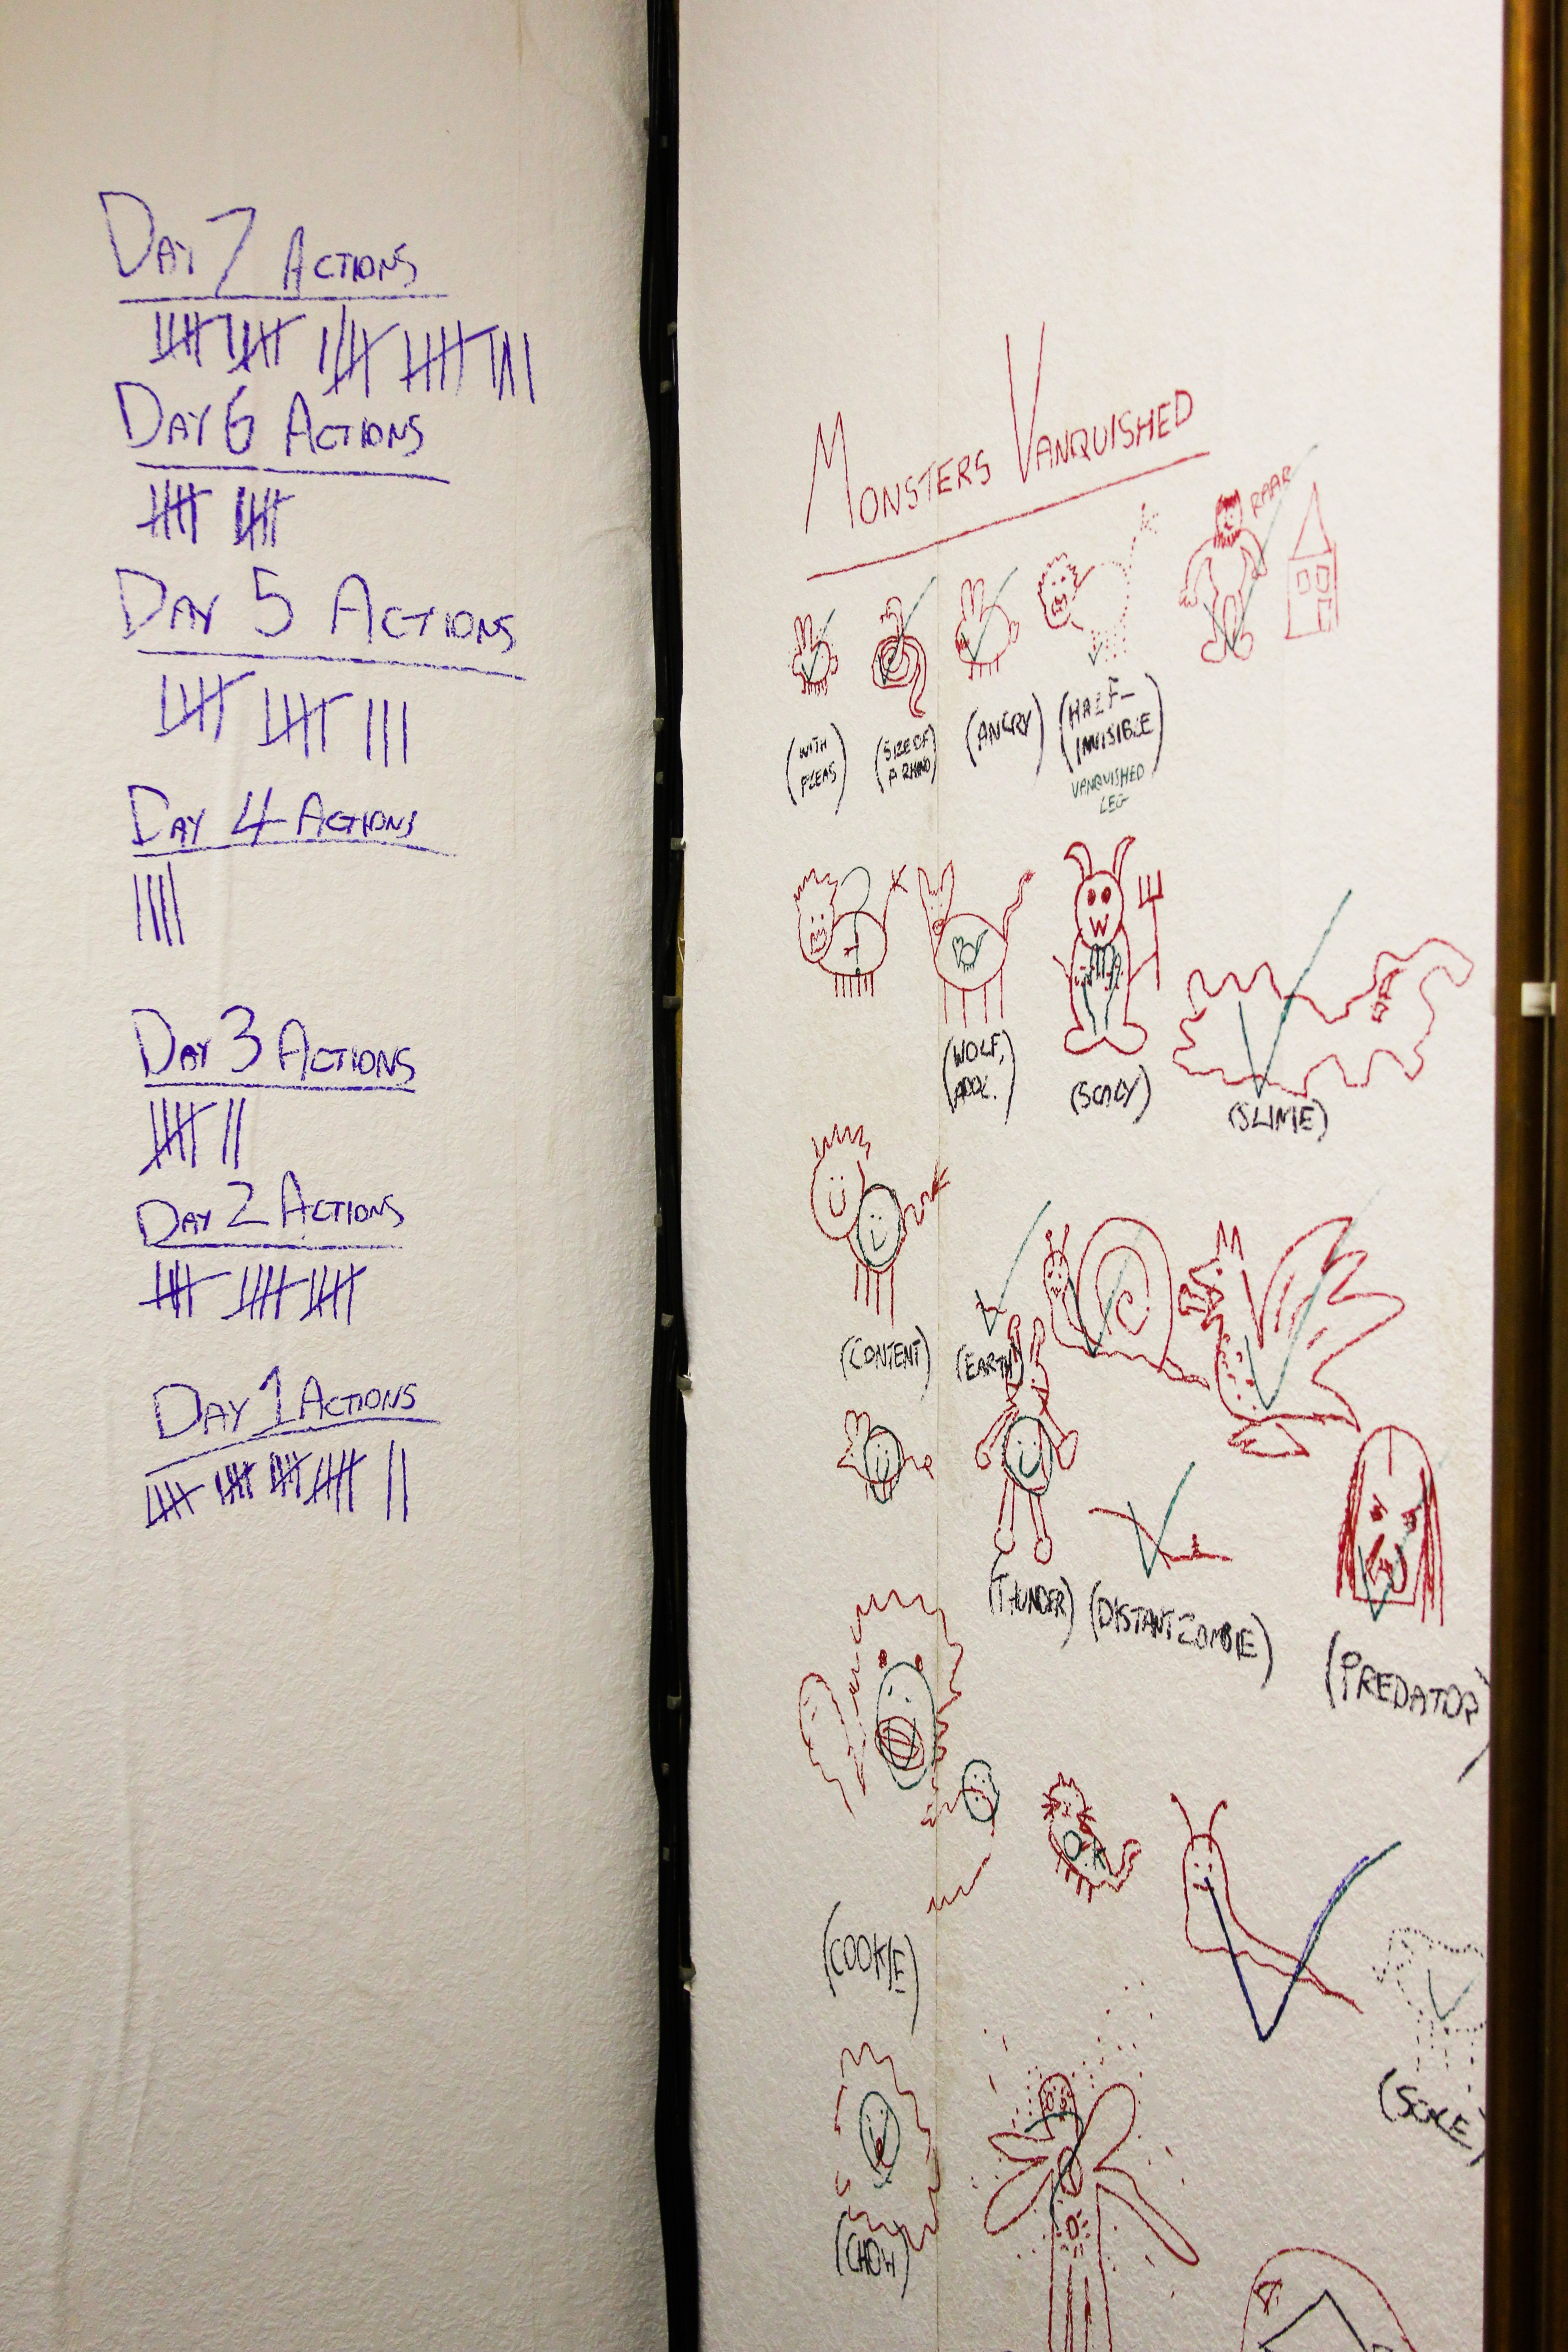 DAY 7 ACTIONS
DAY 6 ACTIONS
DAY 5 ACTIONS
DAY 4 ACTIONS
DAY 3 ACTIONS
DAY 2 ACTIONS
DAY 1 ACTIONS
MONSTERS VANQUISHED
RAAR
(WITH
FLEAS)
(SIZE OF
A RHINO)
(ANGRY)
(HALF-
INVISIBLE)
VANQUISHED
LEG
(WOLF,
(SCALY)
(SLIME)
(CONTENT)
(EARTH)
(THUNDER)
(DISTANT ZOMBIE)
(PREDATOR)
(COOKIE)
(CHOW)